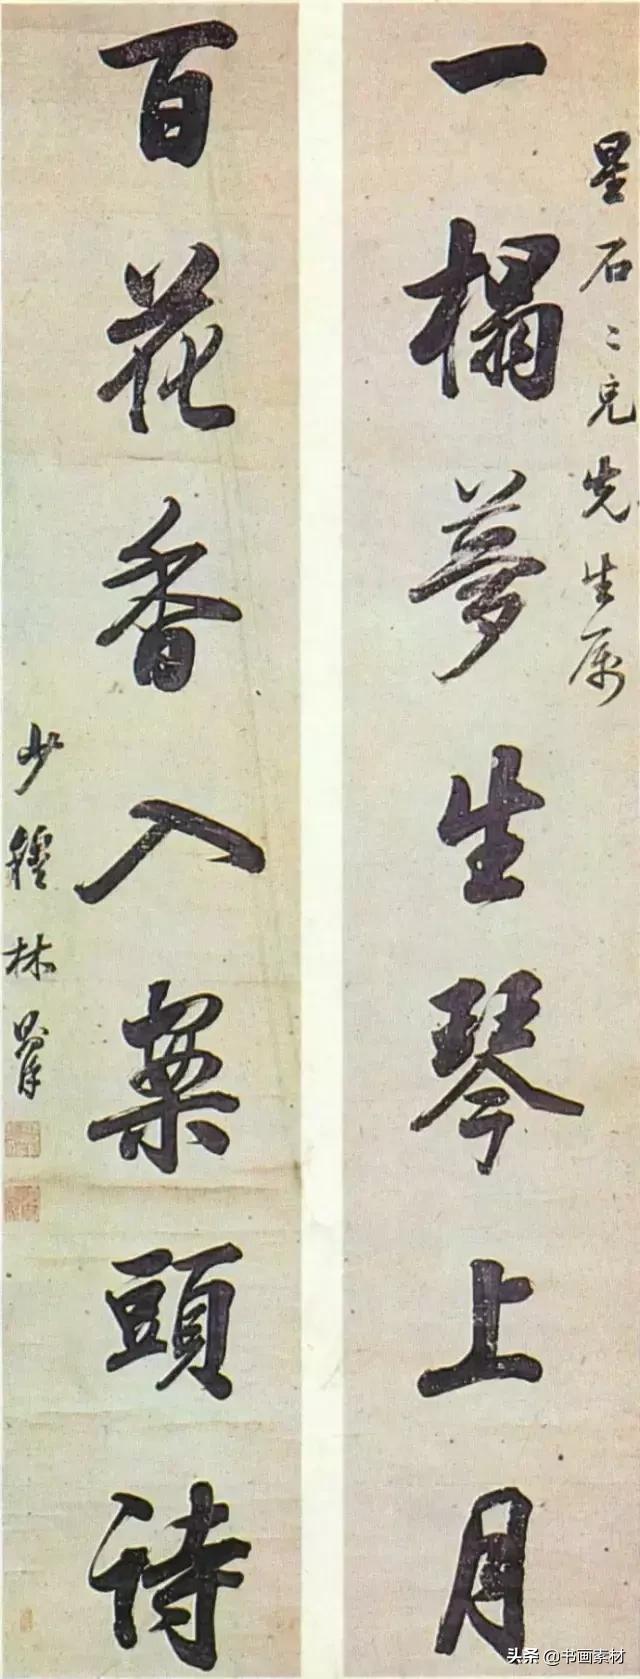 星石二兄先生属
一榻夢生琴上月
百花香入案頭詩
少穆林則徐
头条 @书画素材